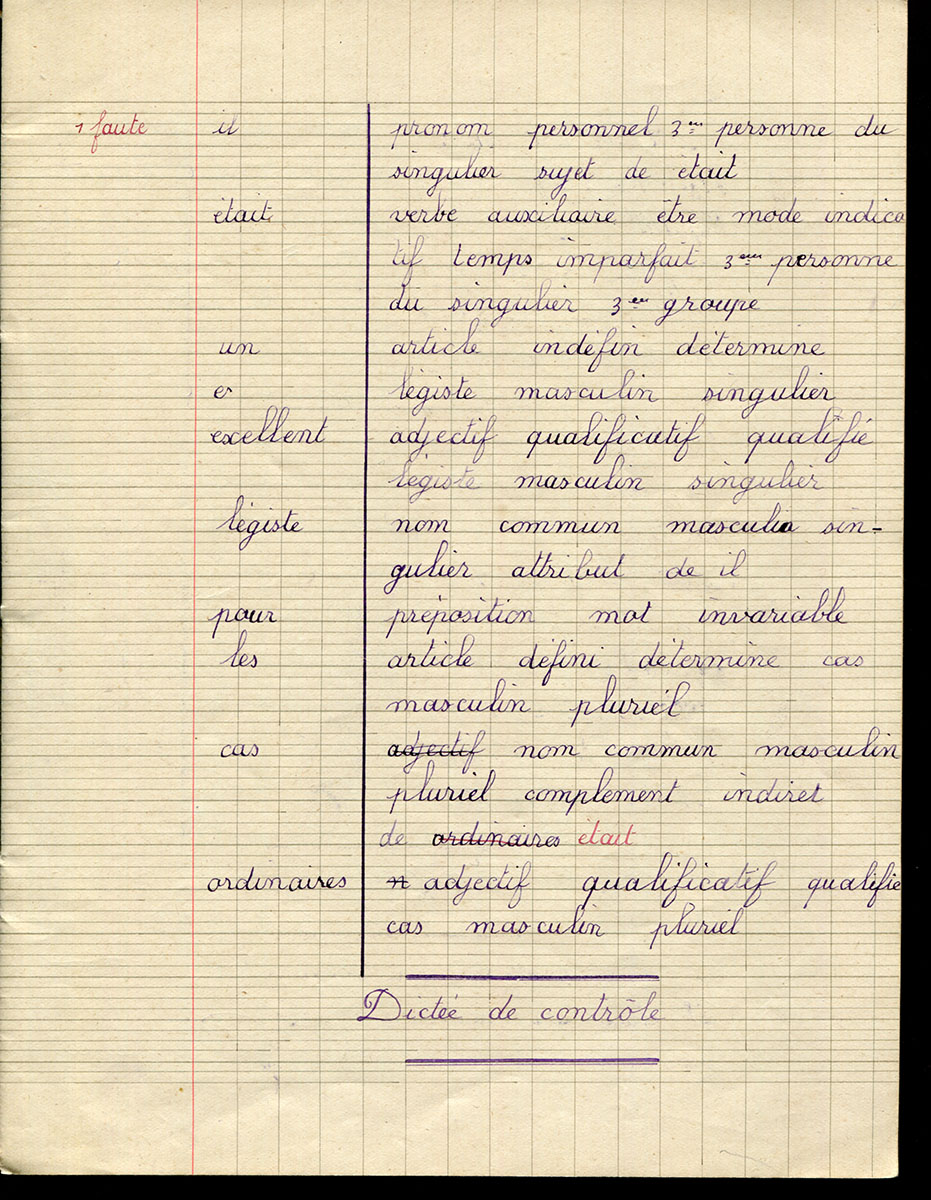 1 faute il pronom personnel 3eme personne du
singulier sujet de était
était verbe auxiliaire être mode indica
tif temps imparfait 3eme personne
du singulier 3em groupe
un article indéfin détermine
er légiste masculin singulier
excellent adjectif qualificatif qualifié
légiste masculin singulier
légiste nom commun masculin sin-
gulier attribut de il
pour préposition mot invariable
les article défini détermine cas
masculin pluriél
cas adjectif nom commun masculin
pluriél complement indiret
de ordinaires était
ordinaires n adjectif qualificatif qualifie
cas masculin pluriél
Dictée de contrôle